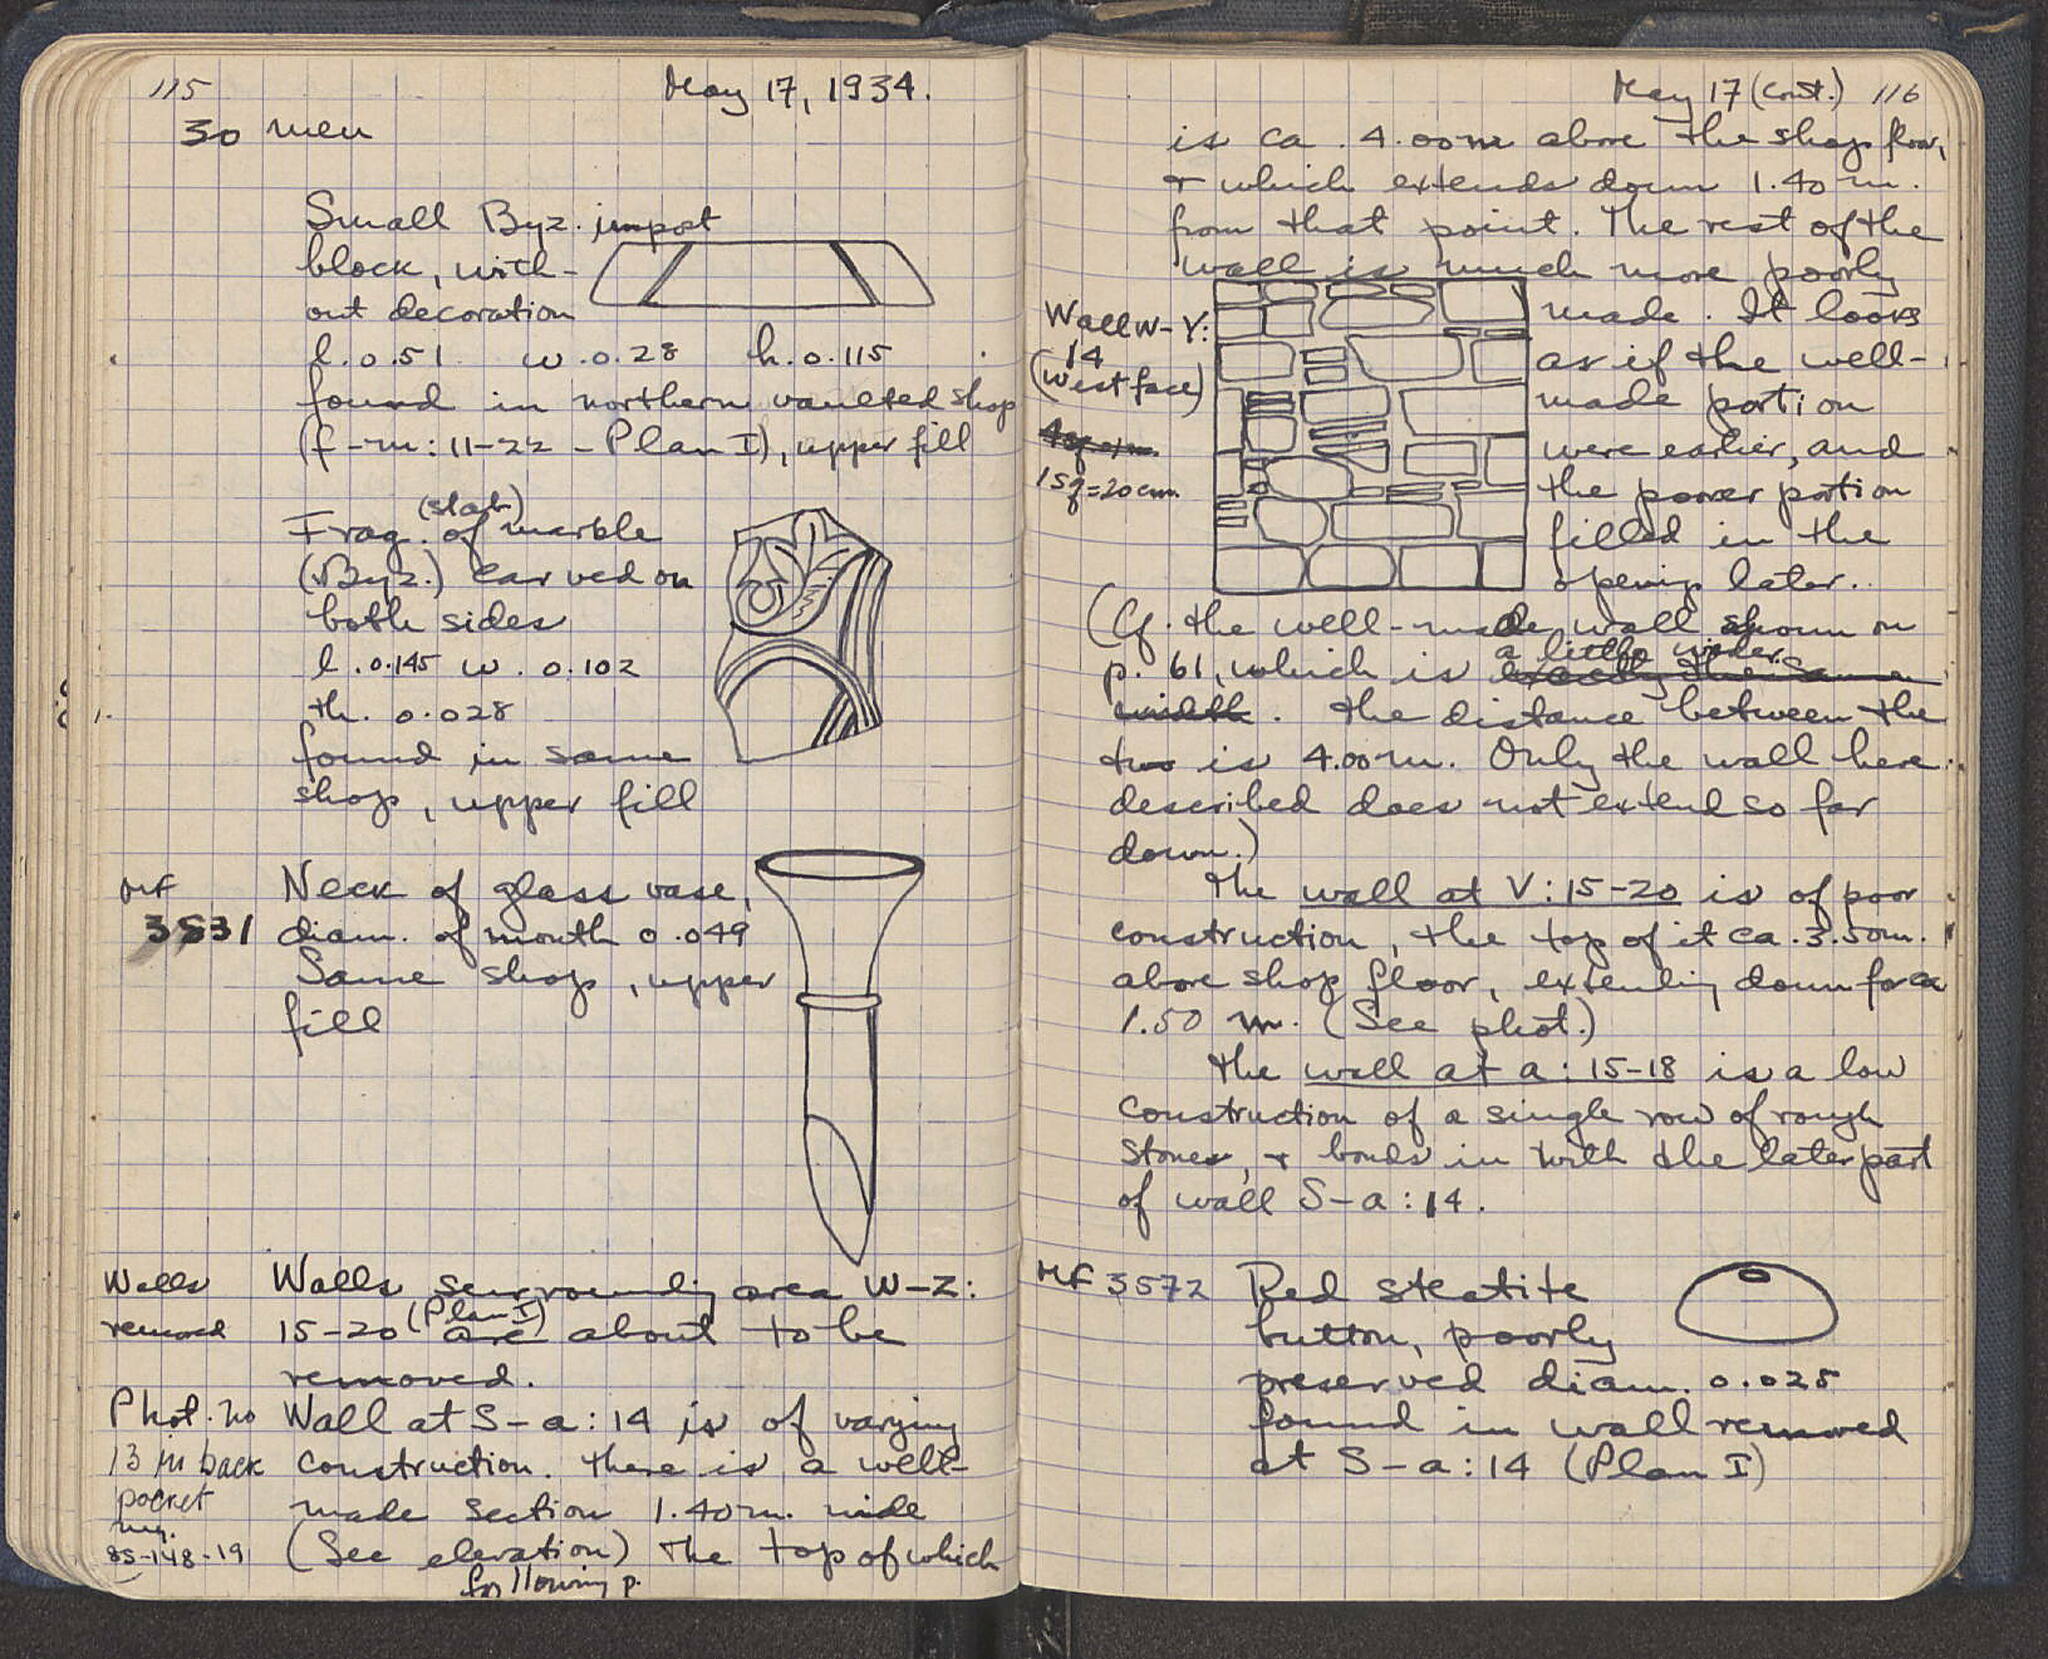 115
May 17, 1934.
30 men
Small Byz. impost
block, with-
out decoration
l. 0.51 w. 0.28 h. 0.115
found in northern vaulted shop
(f-m: 11-22 - Plan I), upper fill
(slab)
Frag. of marble
(Byz.) carved on
both sides
l. 0.145 w. 0.102
th. 0.028
found in same
shop, upper fill
MF
3531
Neck of glass vase,
diam. of mouth 0.049
Same shop, upper
fill
Walls
removed
Walls surrounding area W-Z:
(Plan I)
15-20 are about to be
removed.
Phot. no
13 in back
pocket
neg.
85-148-19
Wall at S-a: 14 is of varying
construction. There is a well-
made section 1.40 m. wide
(See elevation) The top of which
following p.
May 17 (cont.) 116
is ca. 4.00 m above the shop floor,
+ which extends down 1.40 m.
from that point. The rest of the
wall is much more poorly
Wall W-Y:
14
(west face)
1 sq = 20 cm.
made. It looks
as if the well-
made portion
were earlier, and
the poorer portion
filled in the
opening later.
(Cf. the well-made wall shown on
a little wider.
p. 61, which is exactly the same
width. The distance between the
two is 4.00 m. Only the wall here
described does not extend so far
down.)
The wall at V: 15-20 is of poor
construction, the top of it ca. 3.50 m.
above shop floor, extending down for ca
1.50 m. (See phot.)
The wall at a: 15-18 is a low
construction of a single row of rough
stones, + bonds in with the later part
of wall S-a: 14.
MF 3572
Red steatite
button, poorly
preserved diam. 0.025
found in wall removed
at S-a: 14 (Plan I)